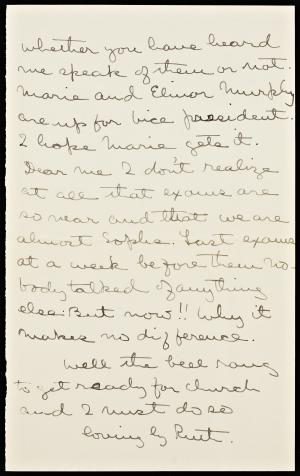 whether you have heard
me speak of them or not.
Marie and Elinor Murphy
are up for vice president.
I hope Marie gets it.
Dear me I don't realize
at all that exams are
so near and that we are
almost Sophs. Last exams
at a week before them no-
body talked of anything
else. But now!! Why it
makes no difference.
Well the bell rang
to get ready for church
and I must do so
Loving by Ruth.